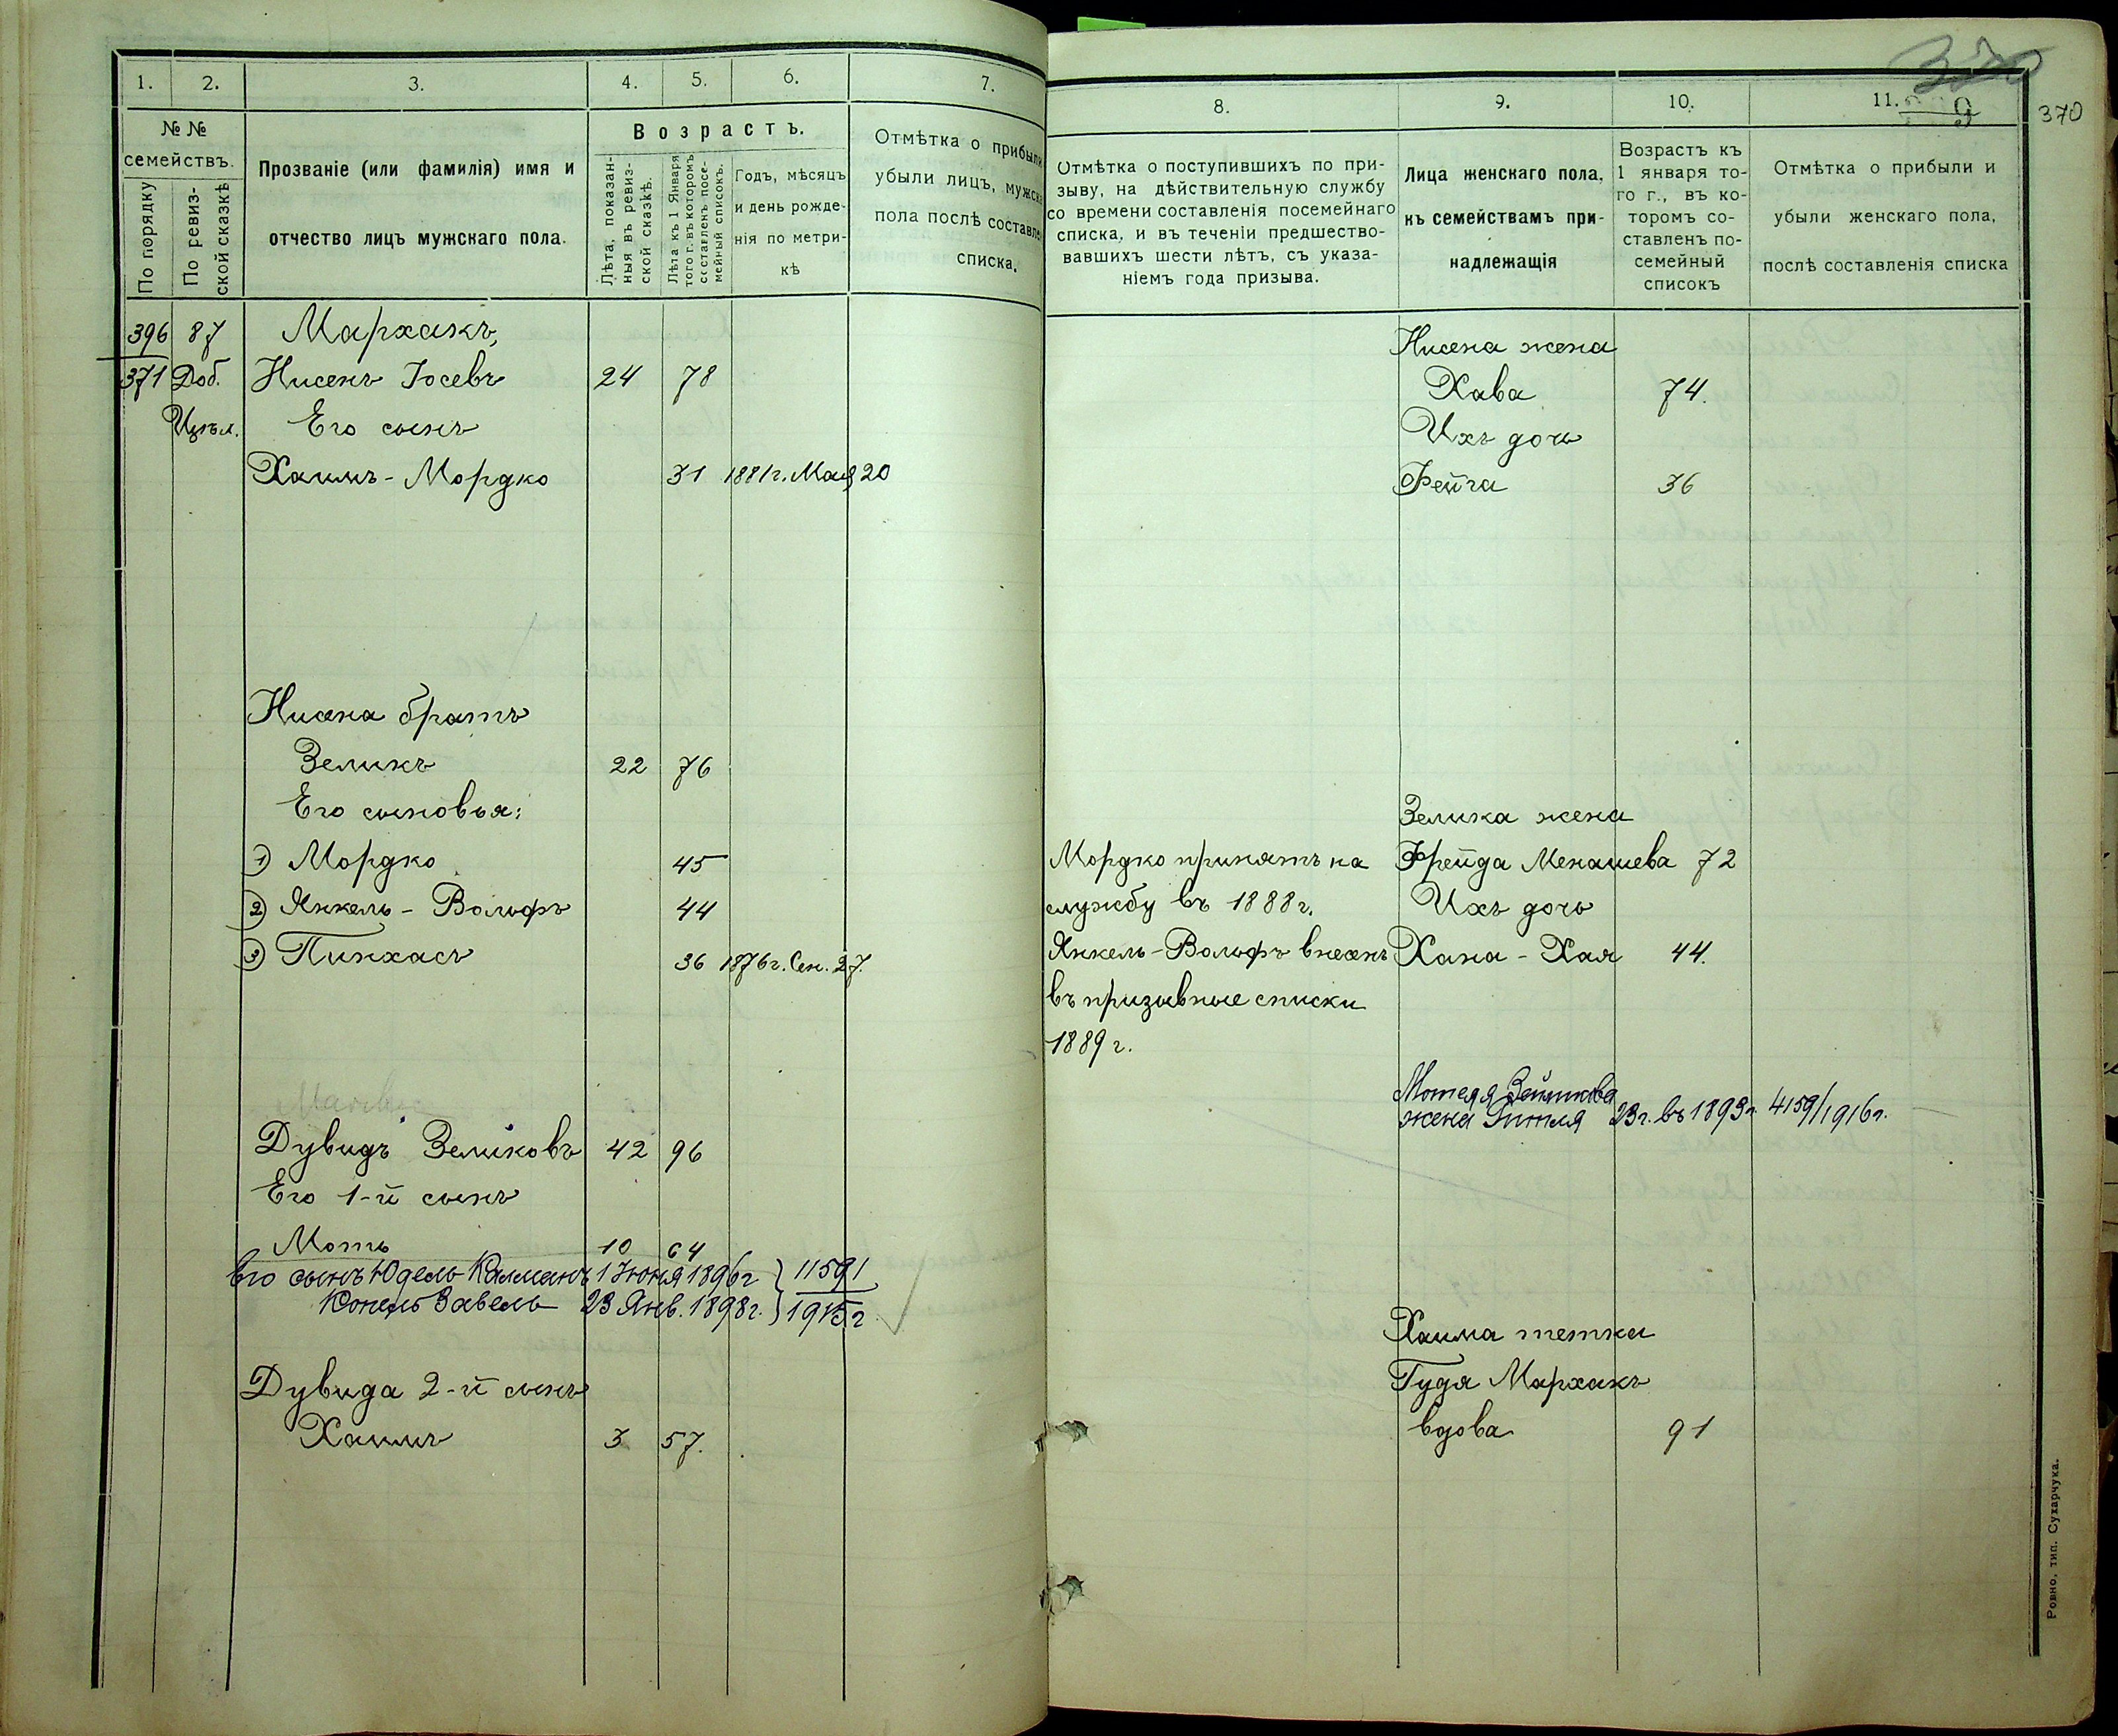 1. 2. 3. 4. 5. 6. 7.
№ №
семействъ.
По порядку
По ревиз-
ской сказкѣ
Прозваніе (или фамилія) имя и
отчество лицъ мужскаго пола.
Возрастъ.
Лѣта, показан-
ныя въ ревиз-
ской сказкѣ.
Лѣта къ 1 Января
того г. въ которомъ
составленъ посе-
мейный списокъ.
Годъ, мѣсяцъ
и день рожде-
нія по метри-
кѣ
Отмѣтка о прибыли
убыли лицъ, мужска
пола послѣ составле
списка.
396 87 Мархакъ,
371 Доб. Нисенъ Іосевъ 24 78
Его сынъ
Хаимъ-Мордко 31 1881г. Мая 20
Нисена братъ
Зеликъ 22 76
Его сыновья:
1) Мордко 45
2) Янкель-Вольфъ 44
3) Пинхасъ 36 1876г. Сен. 27.
Дувидъ Зеликовъ 42 96
Его 1-й сынъ
Моть 10 64
Его сынъ Юдель Калманъ 1 Іюня 1896г } 11591
Копель Завель 23 Янв. 1898г. } 1915г
Дувида 2-й сынъ
Хаимъ 3 57.
370
8. 9. 10. 11.
9
370
Отмѣтка о поступившихъ по при-
зыву, на дѣйствительную службу
со времени составленія посемейнаго
списка, и въ теченіи предшество-
вавшихъ шести лѣтъ, съ указа-
ніемъ года призыва.
Лица женскаго пола,
къ семействамъ при-
надлежащія
Возрастъ къ
1 января то-
го г., въ ко-
торомъ со-
ставленъ по-
семейный
списокъ
Отмѣтка о прибыли и
убыли женскаго пола,
послѣ составленія списка
Нисена жена
Хава 74.
Ихъ дочь
Фейга 36
Зелика жена
Мордко принятъ на Фрейда Менашева 72
службу въ 1888г. Ихъ дочь
Янкель-Вольфъ внесенъ Хана-Хая 44.
въ призывные списки
1889г.
Мотеля
жена Гитля 23г. въ 1893г 4159/1916г.
Хаима тетка
Гудя Мархакъ
вдова 91
Ровно, тип. Сухарчука.